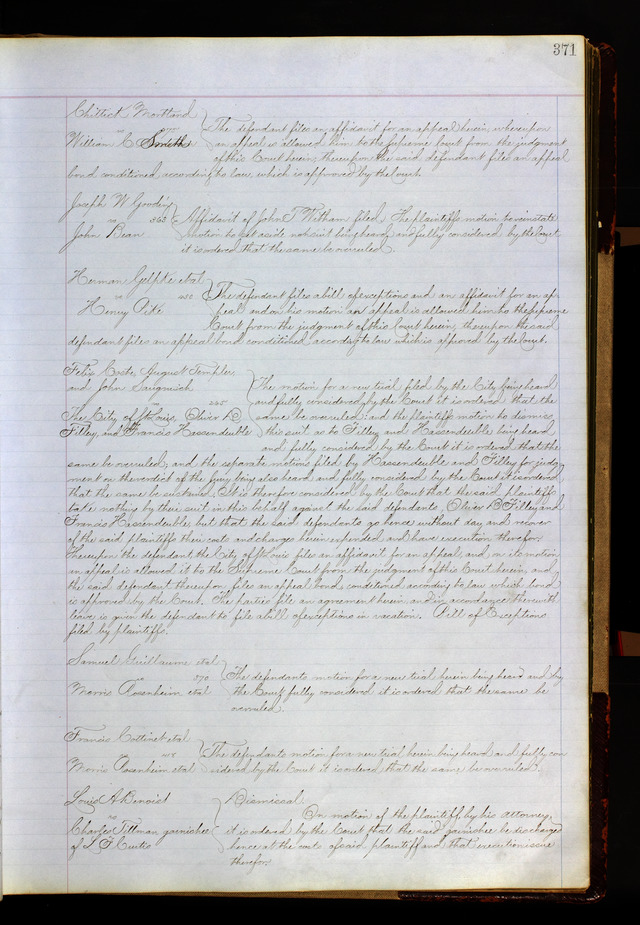 371
Chittick Mortland
vs
William C Smith
The defendant files an affidavit for an appeal herein, whereupon
an appeal is allowed him to the Supreme Court from the judgment
of this Court herein, thereupon the said defendant files an appeal
bond conditioned according to law, which is approved by the Court.
Joseph W Gooding
vs 363
John Bean
Affidavit of John T Witham filed. The plaintiffs motion to reinstate
motion to set aside nonsuit being heard and fully considered by the Court
it is ordered that the same be overruled.
Herman Gelpke et al
vs
Henry Pike
The defendant files a bill of exceptions and an affidavit for an ap-
peal and on his motion an appeal is allowed him to the Supreme
Court from the judgment of this Court herein, thereupon the said
defendant files an appeal bond conditioned according to law which is approved by the Court.
Felix Coste, August Templer
and John
vs
The City of St Louis, Oliver D
Filley, and Francis Hassendeuble
The motion for a new trial filed by the City being heard
and fully considered by the Court it is ordered that the
same be overruled, and the plaintiffs motion to dismiss
this suit as to Filley and Hassendeuble being heard
and fully considered by the Court it is ordered that the
same be overruled, and the separate motions filed by Hassendeuble and Filley for judg-
ment on the verdict of the jury being also heard and fully considered by the Court it is ordered
that the same be sustained. It is therefore considered by the Court that the said plaintiffs
take nothing by their suit in this behalf against the said defendants Oliver D Filley and
Francis Hassendeuble but that the said defendants go hence without day and recover
of the said plaintiffs their costs and charges herein expended and have execution therefor.
Hereupon the defendant the City of St Louis files an affidavit for an appeal, and on its motion
an appeal is allowed it to the Supreme Court from the judgment of this Court herein and
the said defendant thereupon files an appeal bond conditioned according to law which bond
is approved by the Court. The parties file an agreement herein and in accordance therewith
leave is given the defendant to file a bill of exceptions in vacation. Bill of Exceptions
filed by plaintiffs.
Samuel Guillaume et al
vs 370
Morris Rosenheim et al
The defendants motion for a new trial herein being heard and by
the Court fully considered it is ordered that the same be
overruled.
Francis Cottinet et al
vs
Morris Rosenheim et al
The defendants motion for a new trial herein being heard and fully con
sidered by the Court it is ordered that the same be overruled.
Louis A Benoist
vs
Charles Tillman garnishee
of L F Curtis
Dismissal
On motion of the plaintiff by his attorney,
it is ordered by the Court that the said garnishee be discharged
hence at the costs of said plaintiff and that execution issue
therefor.